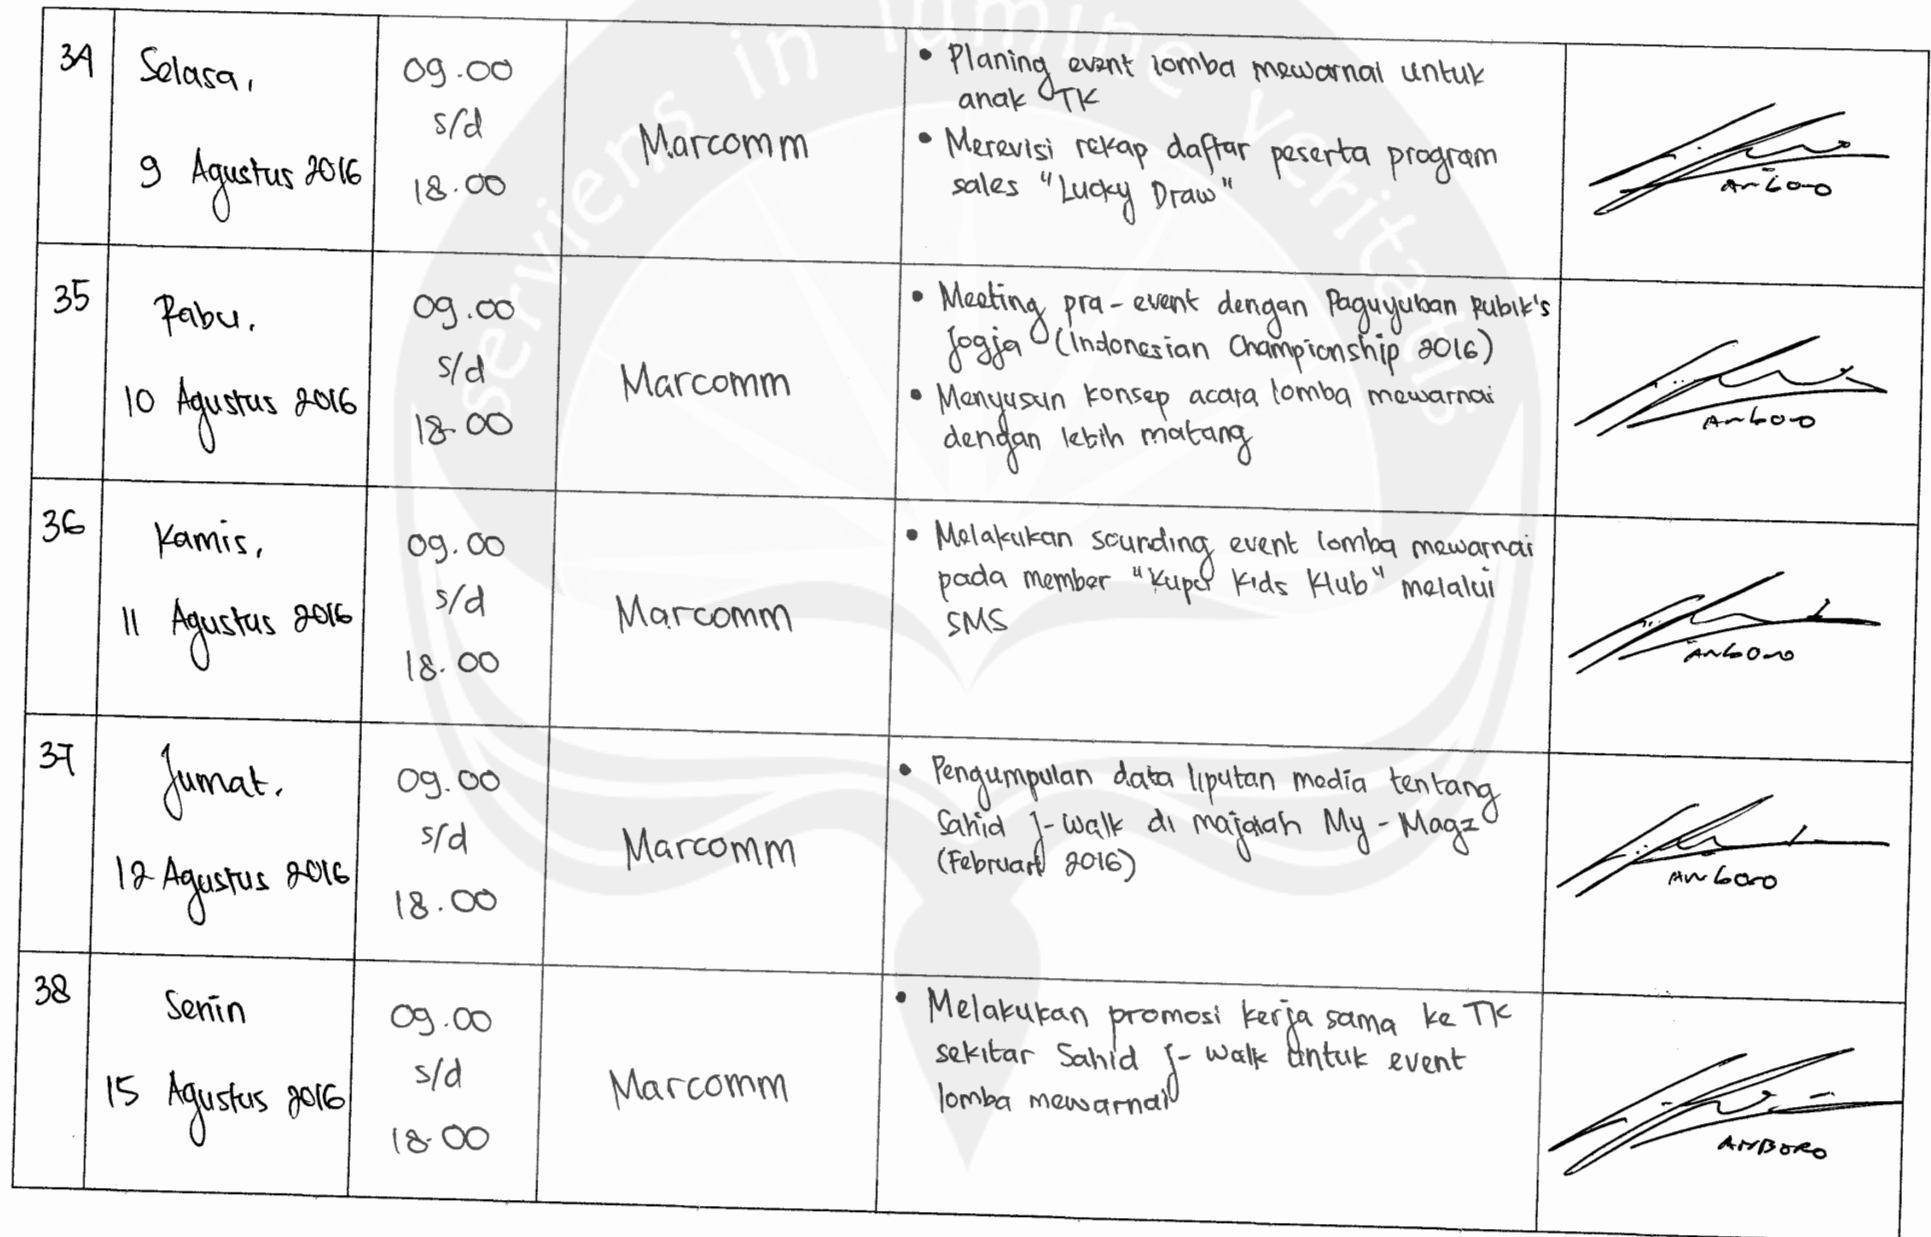 serviens in lumine veritatis
34
Selasa,
9 Agustus 2016
09.00
s/d
18.00
Marcomm
• Planing event lomba mewarnai untuk
anak TK
• Merevisi rekap daftar peserta program
sales "Lucky Draw"
35
Rabu,
10 Agustus 2016
09.00
s/d
18.00
Marcomm
• Meeting pra-event dengan Paguyuban Rubik's
Jogja (Indonesian Championship 2016)
• Menyusun konsep acara lomba mewarnai
dengan lebih matang
36
Kamis,
11 Agustus 2016
09.00
s/d
18.00
Marcomm
• Melakukan sounding event lomba mewarnai
pada member "Kids Klub" melalui
SMS
37
Jumat,
12 Agustus 2016
09.00
s/d
18.00
Marcomm
• Pengumpulan data liputan media tentang
Sahid J-Walk di majalah My-Magz
(Februari 2016)
38
Senin
15 Agustus 2016
09.00
s/d
18.00
Marcomm
• Melakukan promosi kerja sama ke TK
sekitar Sahid J-Walk untuk event
lomba mewarnai
AMBORO